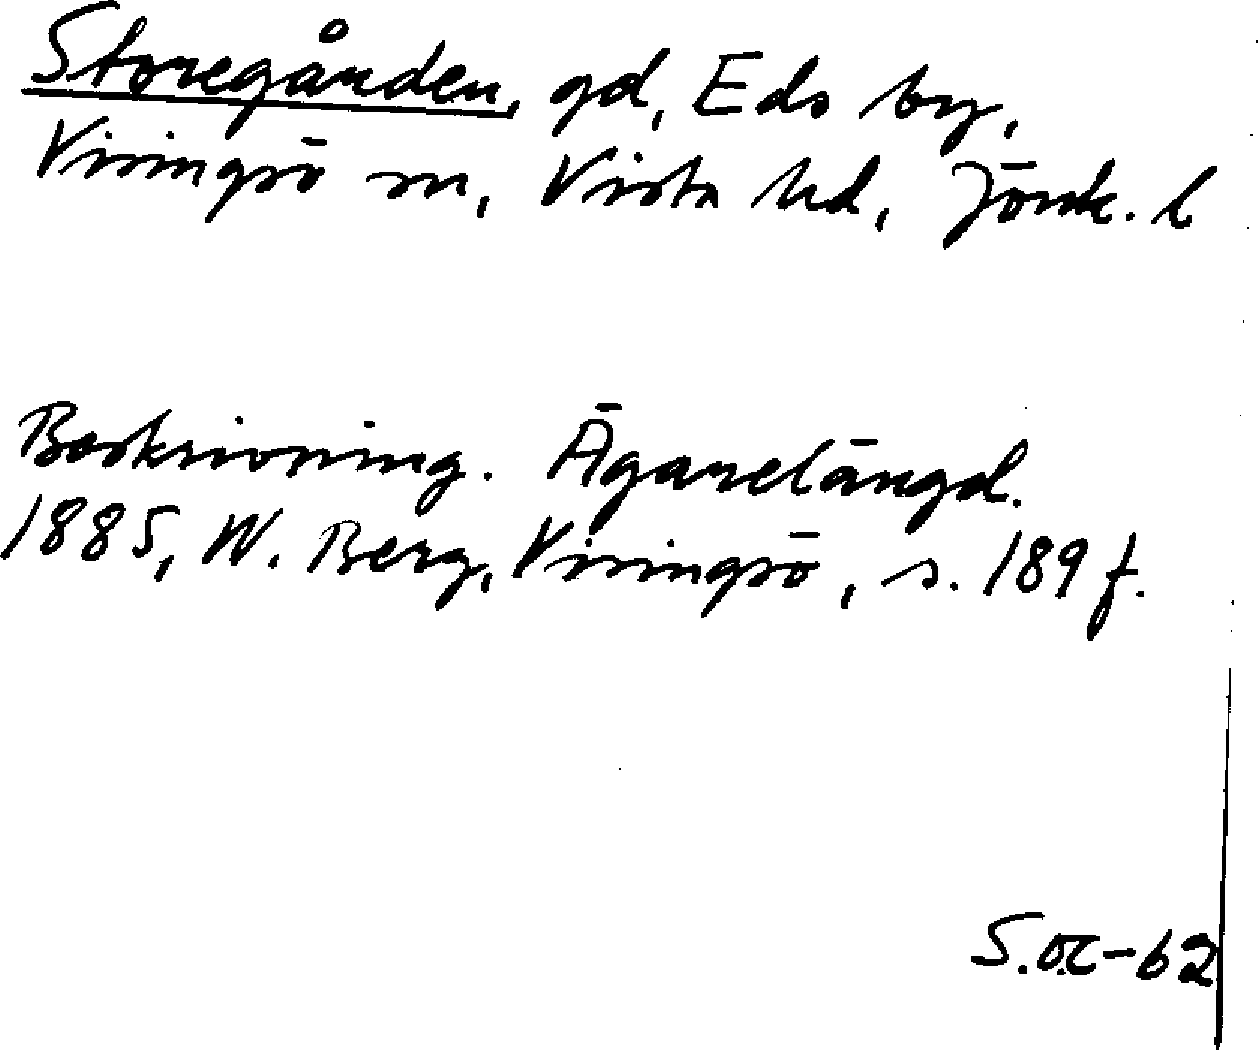 Storegården, gd, Eds by,
Visingsö sn, Vista hd, Jönk. l
Beskrivning. Ägarelängd.
1885, W. Berg, Visingsö, s. 189 f.
S.OC-62